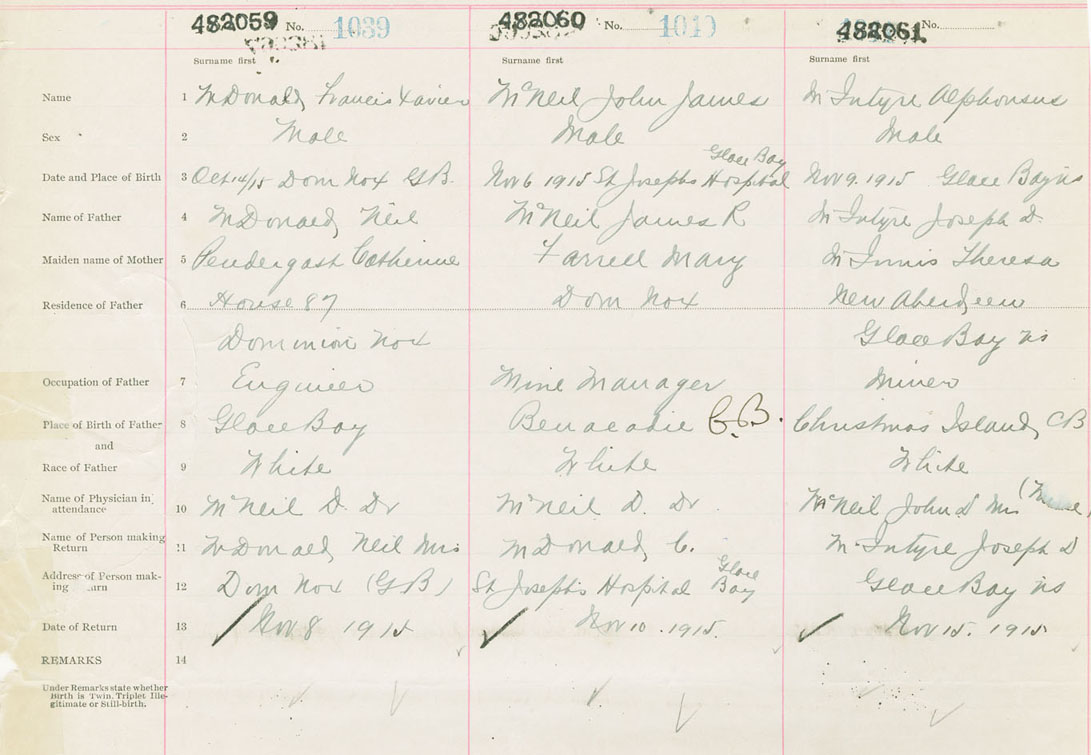 482059 No. 1039 482060 No. 482061 No.
Surname first Surname first Surname first
Name 1 McDonald, Francis Xavier McNeil John James McIntyre Alphonsus
Sex 2 Male Male Male
Glace Bay
Date and Place of Birth 3 Oct 14/15 Dom No x G.B. Nov 6 1915 St Josephs Hospital Nov 9. 1915 Glace Bay NS
Name of Father 4 McDonald, Neil McNeil James R McIntyre Joseph D.
Maiden name of Mother 5 Pendergast Catherine Farrell Mary McInnis Theresa
Residence of Father 6 House 87 Dom No x New Aberdeen
Dominion No x Glace Bay NS
Occupation of Father 7 Engineer Mine Manager Miner
Place of Birth of Father 8 Glace Bay Benacadie C.B. Christmas Island, CB
and
Race of Father 9 White White White
Name of Physician in attendance 10 McNeil D. Dr McNeil D. Dr McNeil John D Mrs
Name of Person making Return 11 McDonald, Neil Mrs McDonald, C. McIntyre Joseph D
Glace
Address of Person mak- ing 12 Dom No x (G.B) St Joseph's Hospital Bay Glace Bay NS
Date of Return 13 Nov 8 1915 Nov 10. 1915. Nov 15. 1915
REMARKS 14
Under Remarks state whether
Birth is Twin, Triplet Ille-
gitimate or Still-birth.